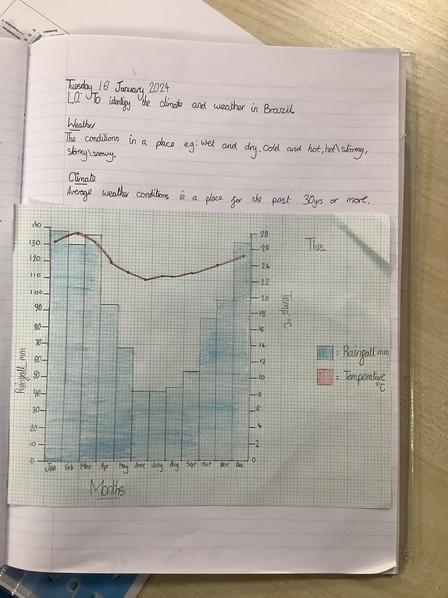 Tuesday 16 January 2024
L.O: To identify the climate and weather in Brazil.
Weather
The conditions in a place eg: wet and dry, cold and hot, hot\stormy,
stormy\snowy.
Climate
Average weather conditions in a place for the past 30yrs or more.
This
140
130
120
110
100
90
80
70
60
50
40
30
20
10
0
Rainfall mm
28
26
24
22
20
18
16
14
12
10
8
6
4
2
0
Temp °C
= Rainfall mm
= Temperature
°C
Jan Feb Mar Apr May June July Aug Sept Oct Nov Dec
Months